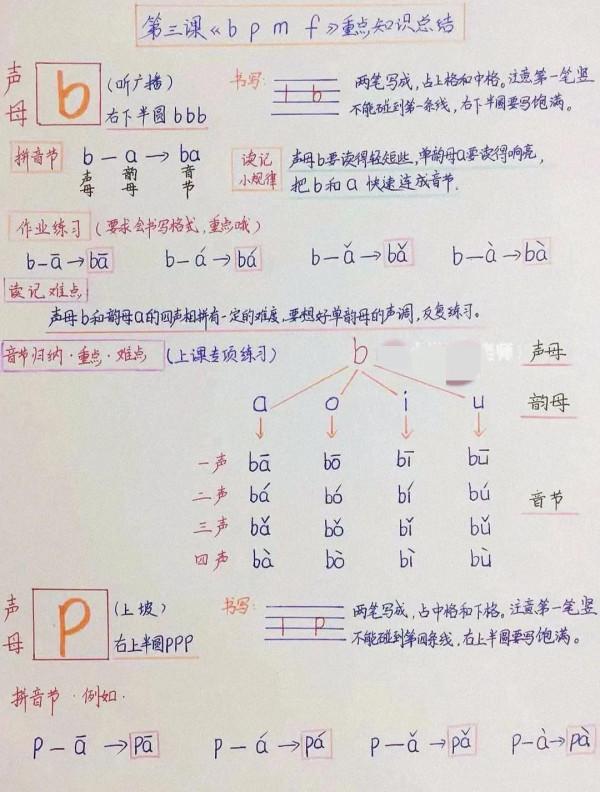 第三课《b p m f》重点知识总结
声母 b (听广播) 书写: b 两笔写成,占上格和中格。注意第一笔竖
右下半圆 bbb 不能碰到第一条线,右下半圆要写饱满。
拼音节 b — a → ba 读记小规律 声母b要读得轻短些,单韵母a要读得响亮,
声母 韵母 音节 把b和a快速连成音节.
作业练习 (要求会书写格式,重点哦)
b — ā → bā b — á → bá b — ǎ → bǎ b — à → bà
读记难点
声母b和韵母a的四声相拼有一定的难度,要想好单韵母的声调,反复练习。
音节归纳·重点·难点 (上课专项练习) b 师 声母
a o i u 韵母
一声 bā bō bī bū
二声 bá bó bí bú 音节
三声 bǎ bǒ bǐ bǔ
四声 bà bò bì bù
声母 p (上坡) 书写: p 两笔写成,占中格和下格。注意第一笔竖
右上半圆PPP 不能碰到第四条线,右上半圆要写饱满。
拼音节·例如·
p — ā → pā p — á → pá p — ǎ → pǎ p — à → pà